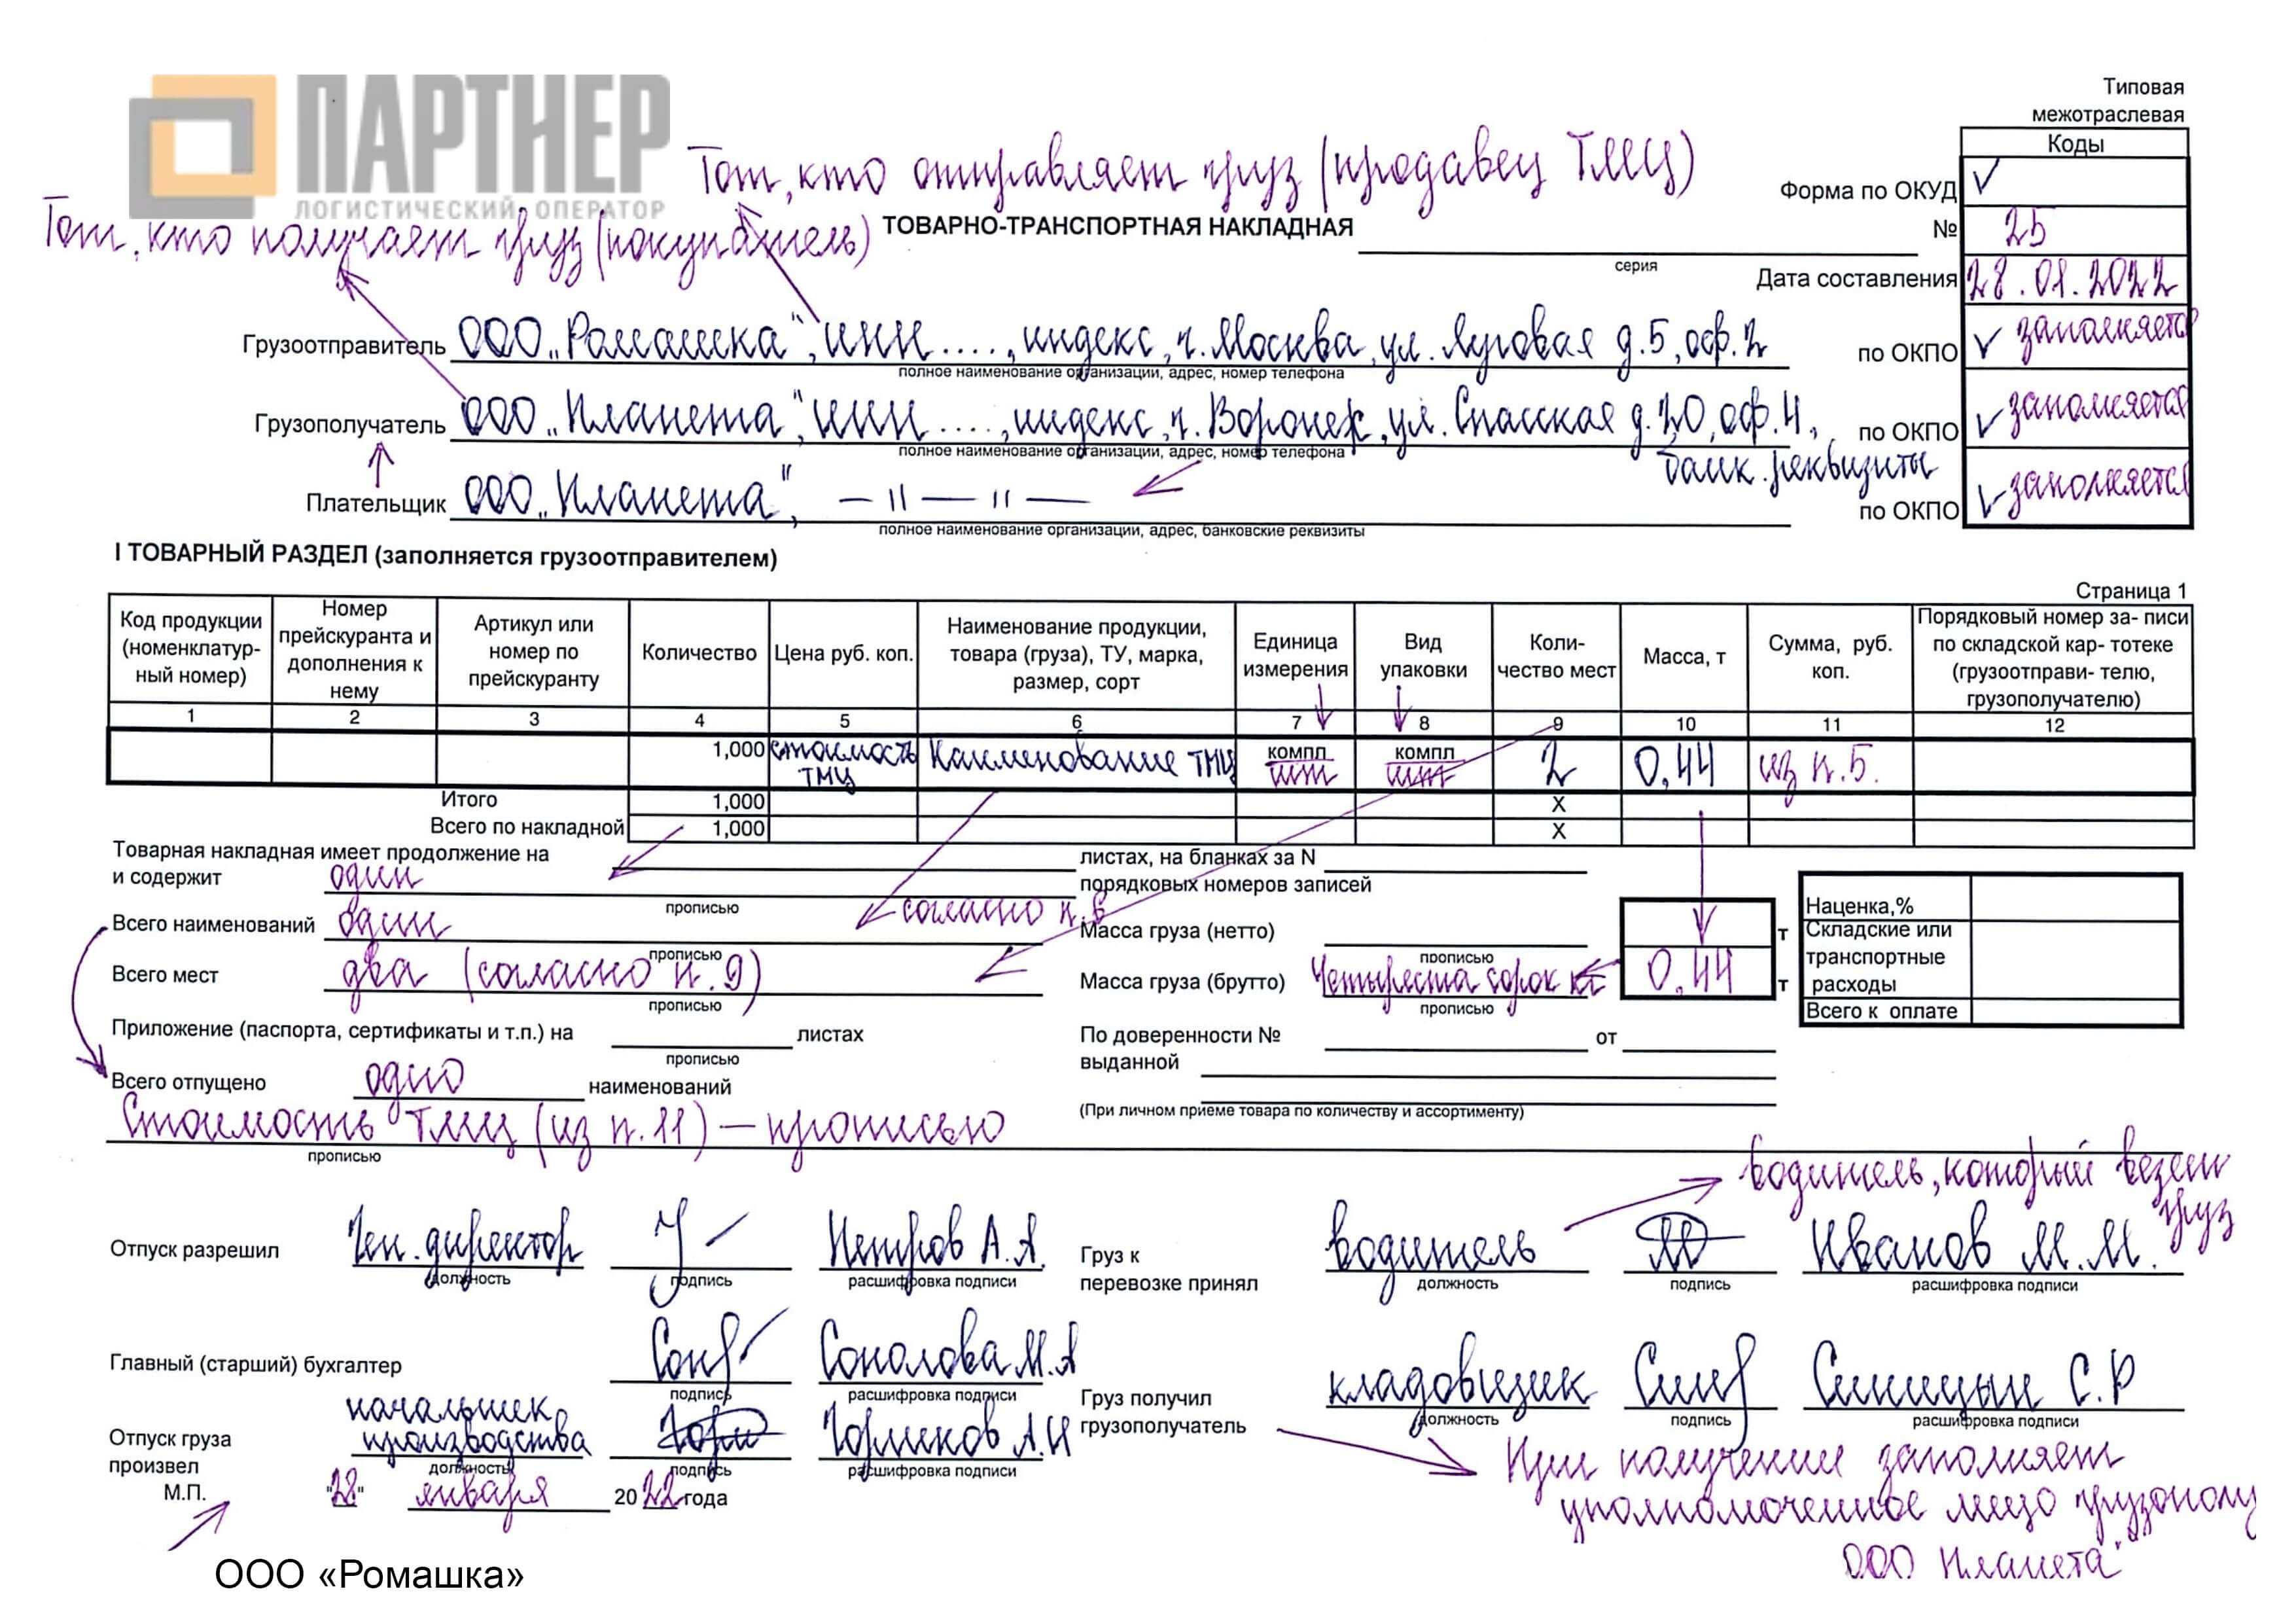 ПАРТНЕР
ЛОГИСТИЧЕСКИЙ ОПЕРАТОР
Типовая
межотраслевая
Коды
Тот, кто отправляет груз (продавец ТМЦ)
Форма по ОКУД
Тот, кто получает груз (покупатель)
ТОВАРНО-ТРАНСПОРТНАЯ НАКЛАДНАЯ
серия
№ 25
Дата составления 28.01.2022
Грузоотправитель ООО „Ромашка", ИНН ...., индекс, г. Москва, ул. Луговая д. 5, оф. 2 по ОКПО заполняется
полное наименование организации, адрес, номер телефона
Грузополучатель ООО „Планета", ИНН ...., индекс, г. Воронеж, ул. Спасская д. 20, оф. 4, по ОКПО заполняется
полное наименование организации, адрес, номер телефона
банк. реквизиты
Плательщик ООО „Планета", — " — " — по ОКПО заполняется
полное наименование организации, адрес, банковские реквизиты
I ТОВАРНЫЙ РАЗДЕЛ (заполняется грузоотправителем)
Страница 1
Код продукции (номенклатур- ный номер)
Номер прейскуранта и дополнения к нему
Артикул или номер по прейскуранту
Количество
Цена руб. коп.
Наименование продукции, товара (груза), ТУ, марка, размер, сорт
Единица измерения
Вид упаковки
Коли- чество мест
Масса, т
Сумма, руб. коп.
Порядковый номер за- писи по складской кар- тотеке (грузоотправи- телю, грузополучателю)
1 2 3 4 5 6 7 8 9 10 11 12
1,000 стоимость ТМЦ Наименование ТМЦ компл шт компл шт 2 0,44 из п.5.
Итого 1,000 X
Всего по накладной 1,000 X
Товарная накладная имеет продолжение на листах, на бланках за N
и содержит один порядковых номеров записей
прописью
Всего наименований один согласно п. 6
прописью
Масса груза (нетто) т
прописью
Всего мест два (согласно п. 9)
прописью
Масса груза (брутто) Четыреста сорок кг 0,44 т
прописью
Наценка,%
Складские или
транспортные
расходы
Всего к оплате
Приложение (паспорта, сертификаты и т.п.) на листах
прописью
По доверенности № от
выданной
Всего отпущено одно наименований
(При личном приеме товара по количеству и ассортименту)
Стоимость ТМЦ (из п. 11) — прописью
прописью
водитель, который везет
груз
Отпуск разрешил Ген. директор Петров А.А.
должность подпись расшифровка подписи
Груз к
перевозке принял водитель Иванов М.М.
должность подпись расшифровка подписи
Главный (старший) бухгалтер Соколова М.А
подпись расшифровка подписи
Груз получил
грузополучатель кладовщик Синицын С.Р
должность подпись расшифровка подписи
Отпуск груза
произвел начальник производства Горшков А.И
должность подпись расшифровка подписи
М.П. "28" января 20 22 года
При получении заполняет
уполномоченное лицо грузополу
ООО Планета"
ООО «Ромашка»